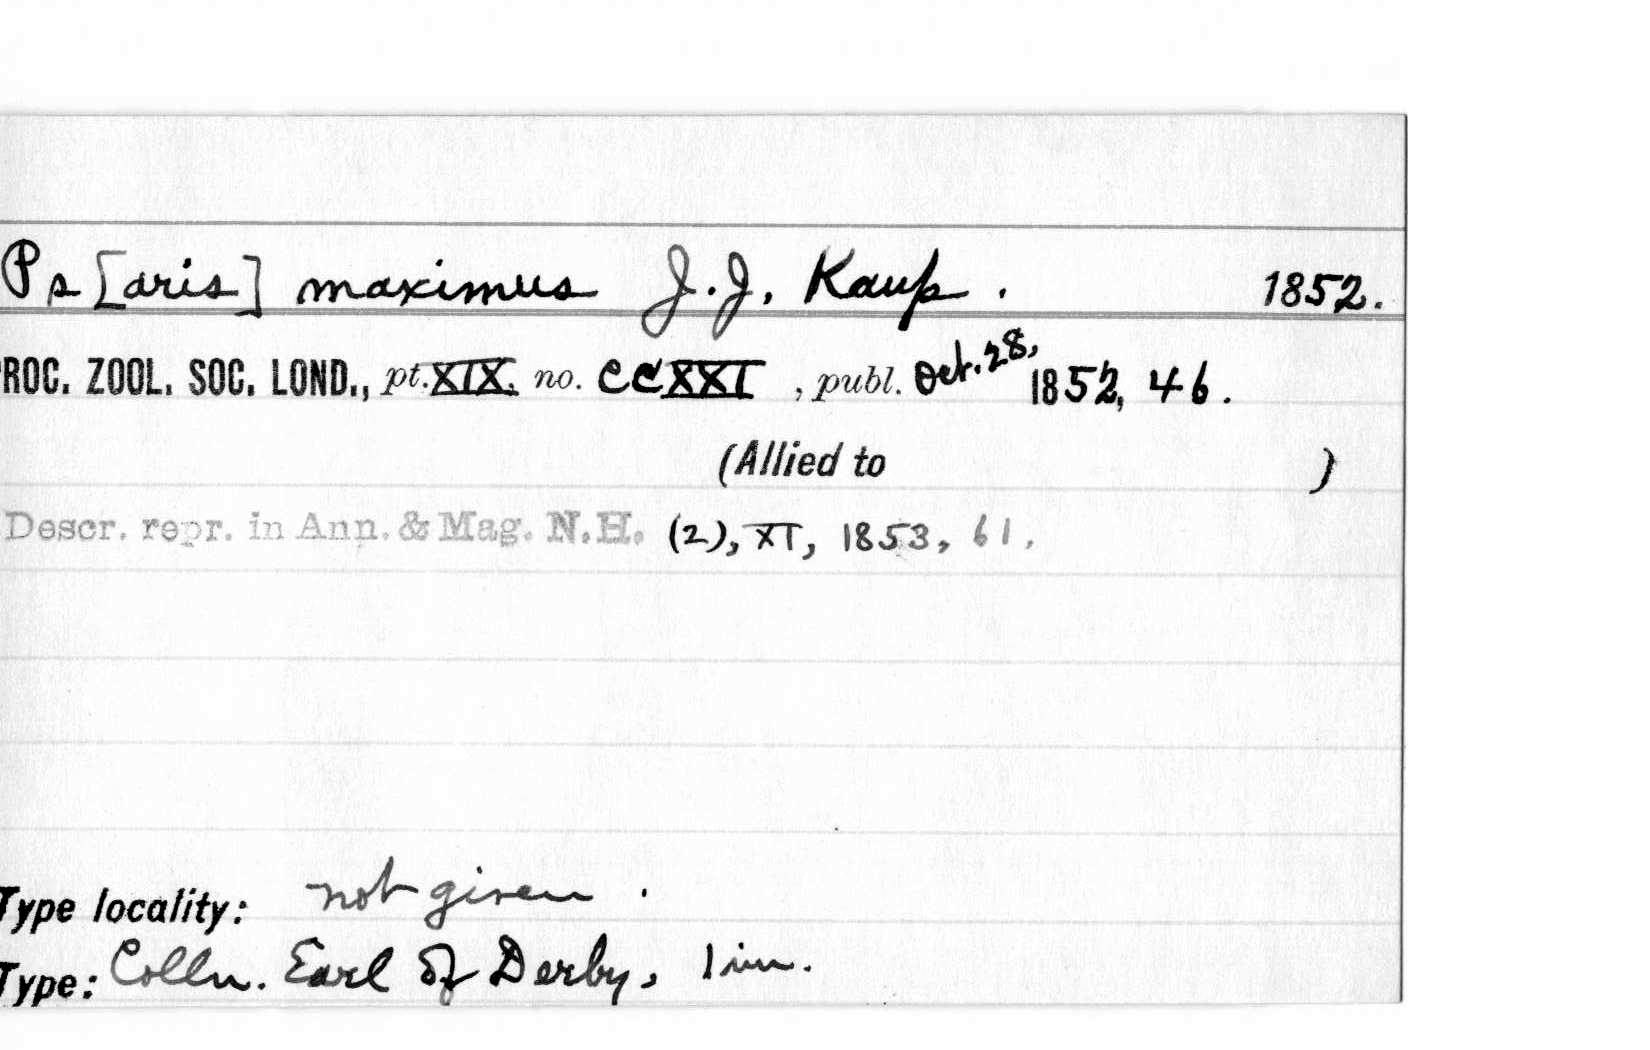 Ps[aris] maximus J.J. Kaup. 1852.
ROC. ZOOL. SOC. LOND., pt. XIX, no. CCXXI, publ. Oct. 28, 1852, 46.
(Allied to )
Descr. repr. in Ann. & Mag. N.H. (2), XI, 1853, 61.
Type locality: not given.
Type: Colln. Earl of Derby,